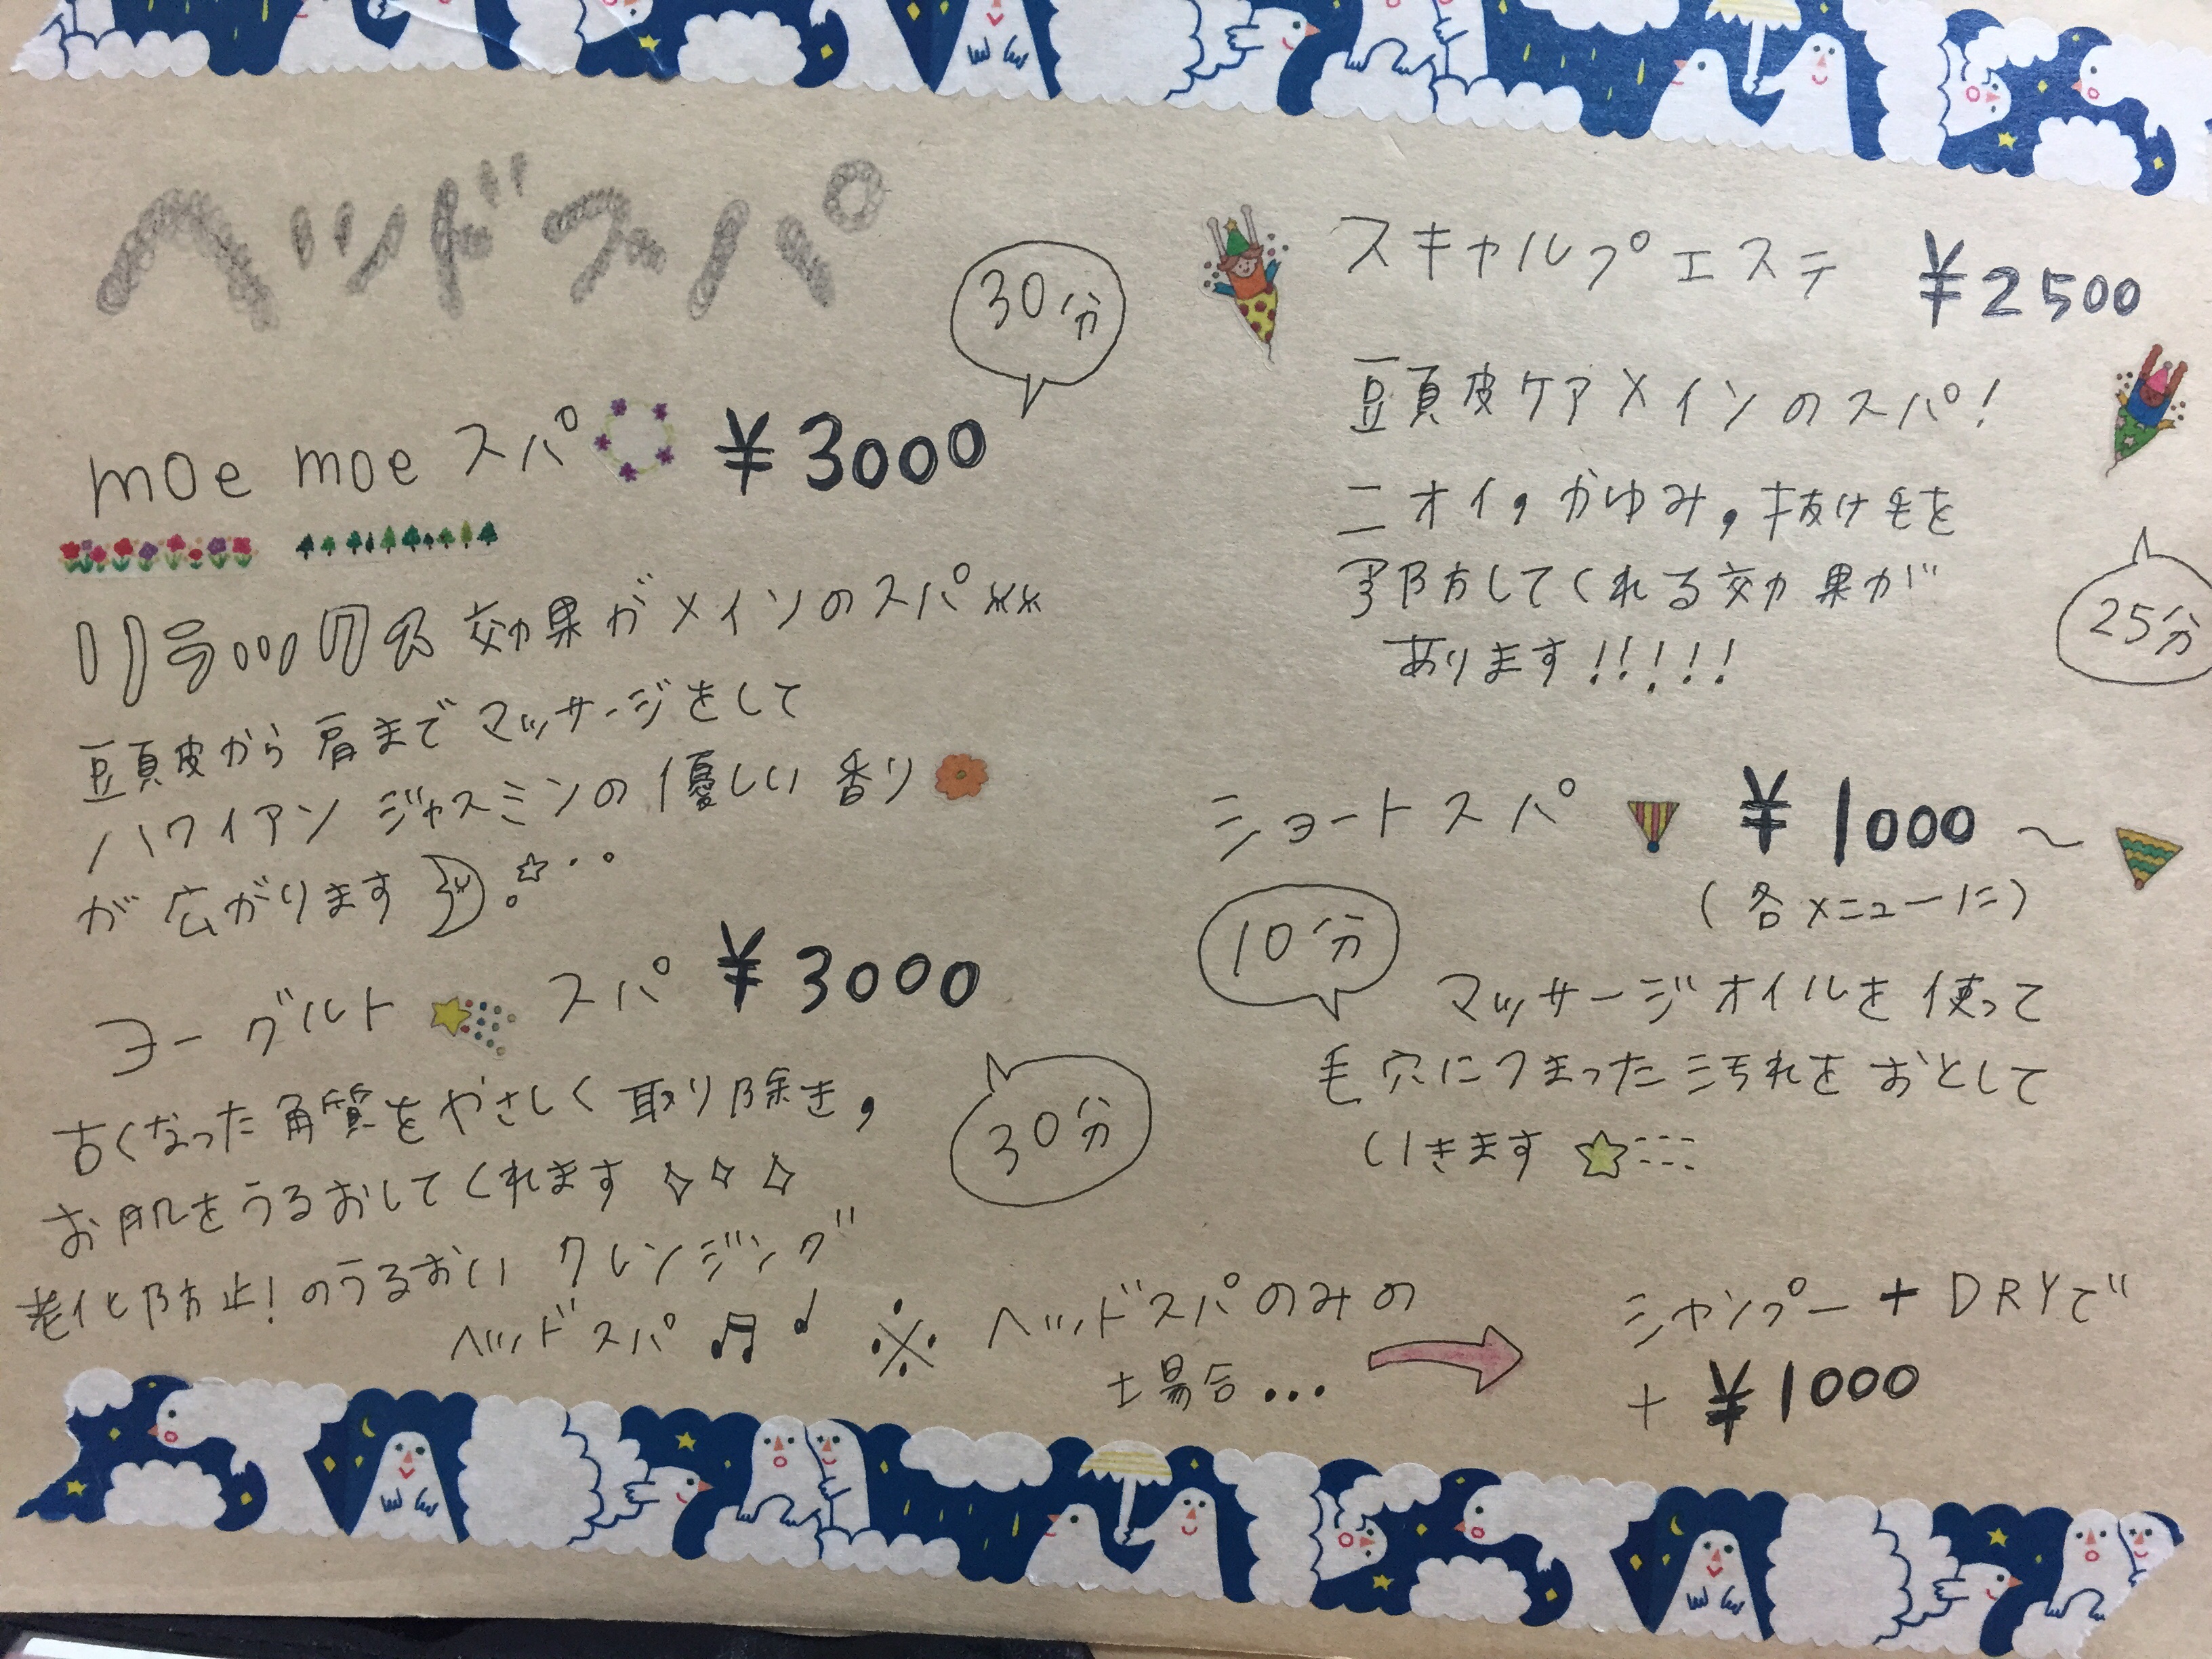 ヘッドスパ
30分
moe moe スパ ¥3000
リラックス効果がメインのスパ
頭皮から肩までマッサージをして
ハワイアンジャスミンの優しい香り
が広がります
ヨーグルトスパ ¥3000
30分
古くなった角質をやさしく取り除き,
お肌をうるおしてくれます
老化防止!のうるおいクレンジング
ヘッドスパ
スキャルプエステ ¥2500
頭皮ケアメインのスパ!
ニオイ,かゆみ,抜け毛を
予防してくれる効果が
あります!!!!!
25分
ショートスパ ¥1000~
(各メニューに)
10分
マッサージオイルを使って
毛穴につまった汚れをおとして
いきます
※ヘッドスパのみの
場合...
シャンプー+DRYで
+¥1000